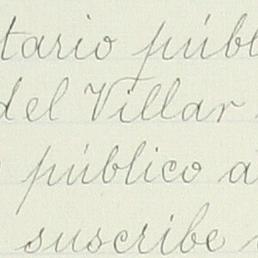 tario públ
del Villar
público a
suscribe